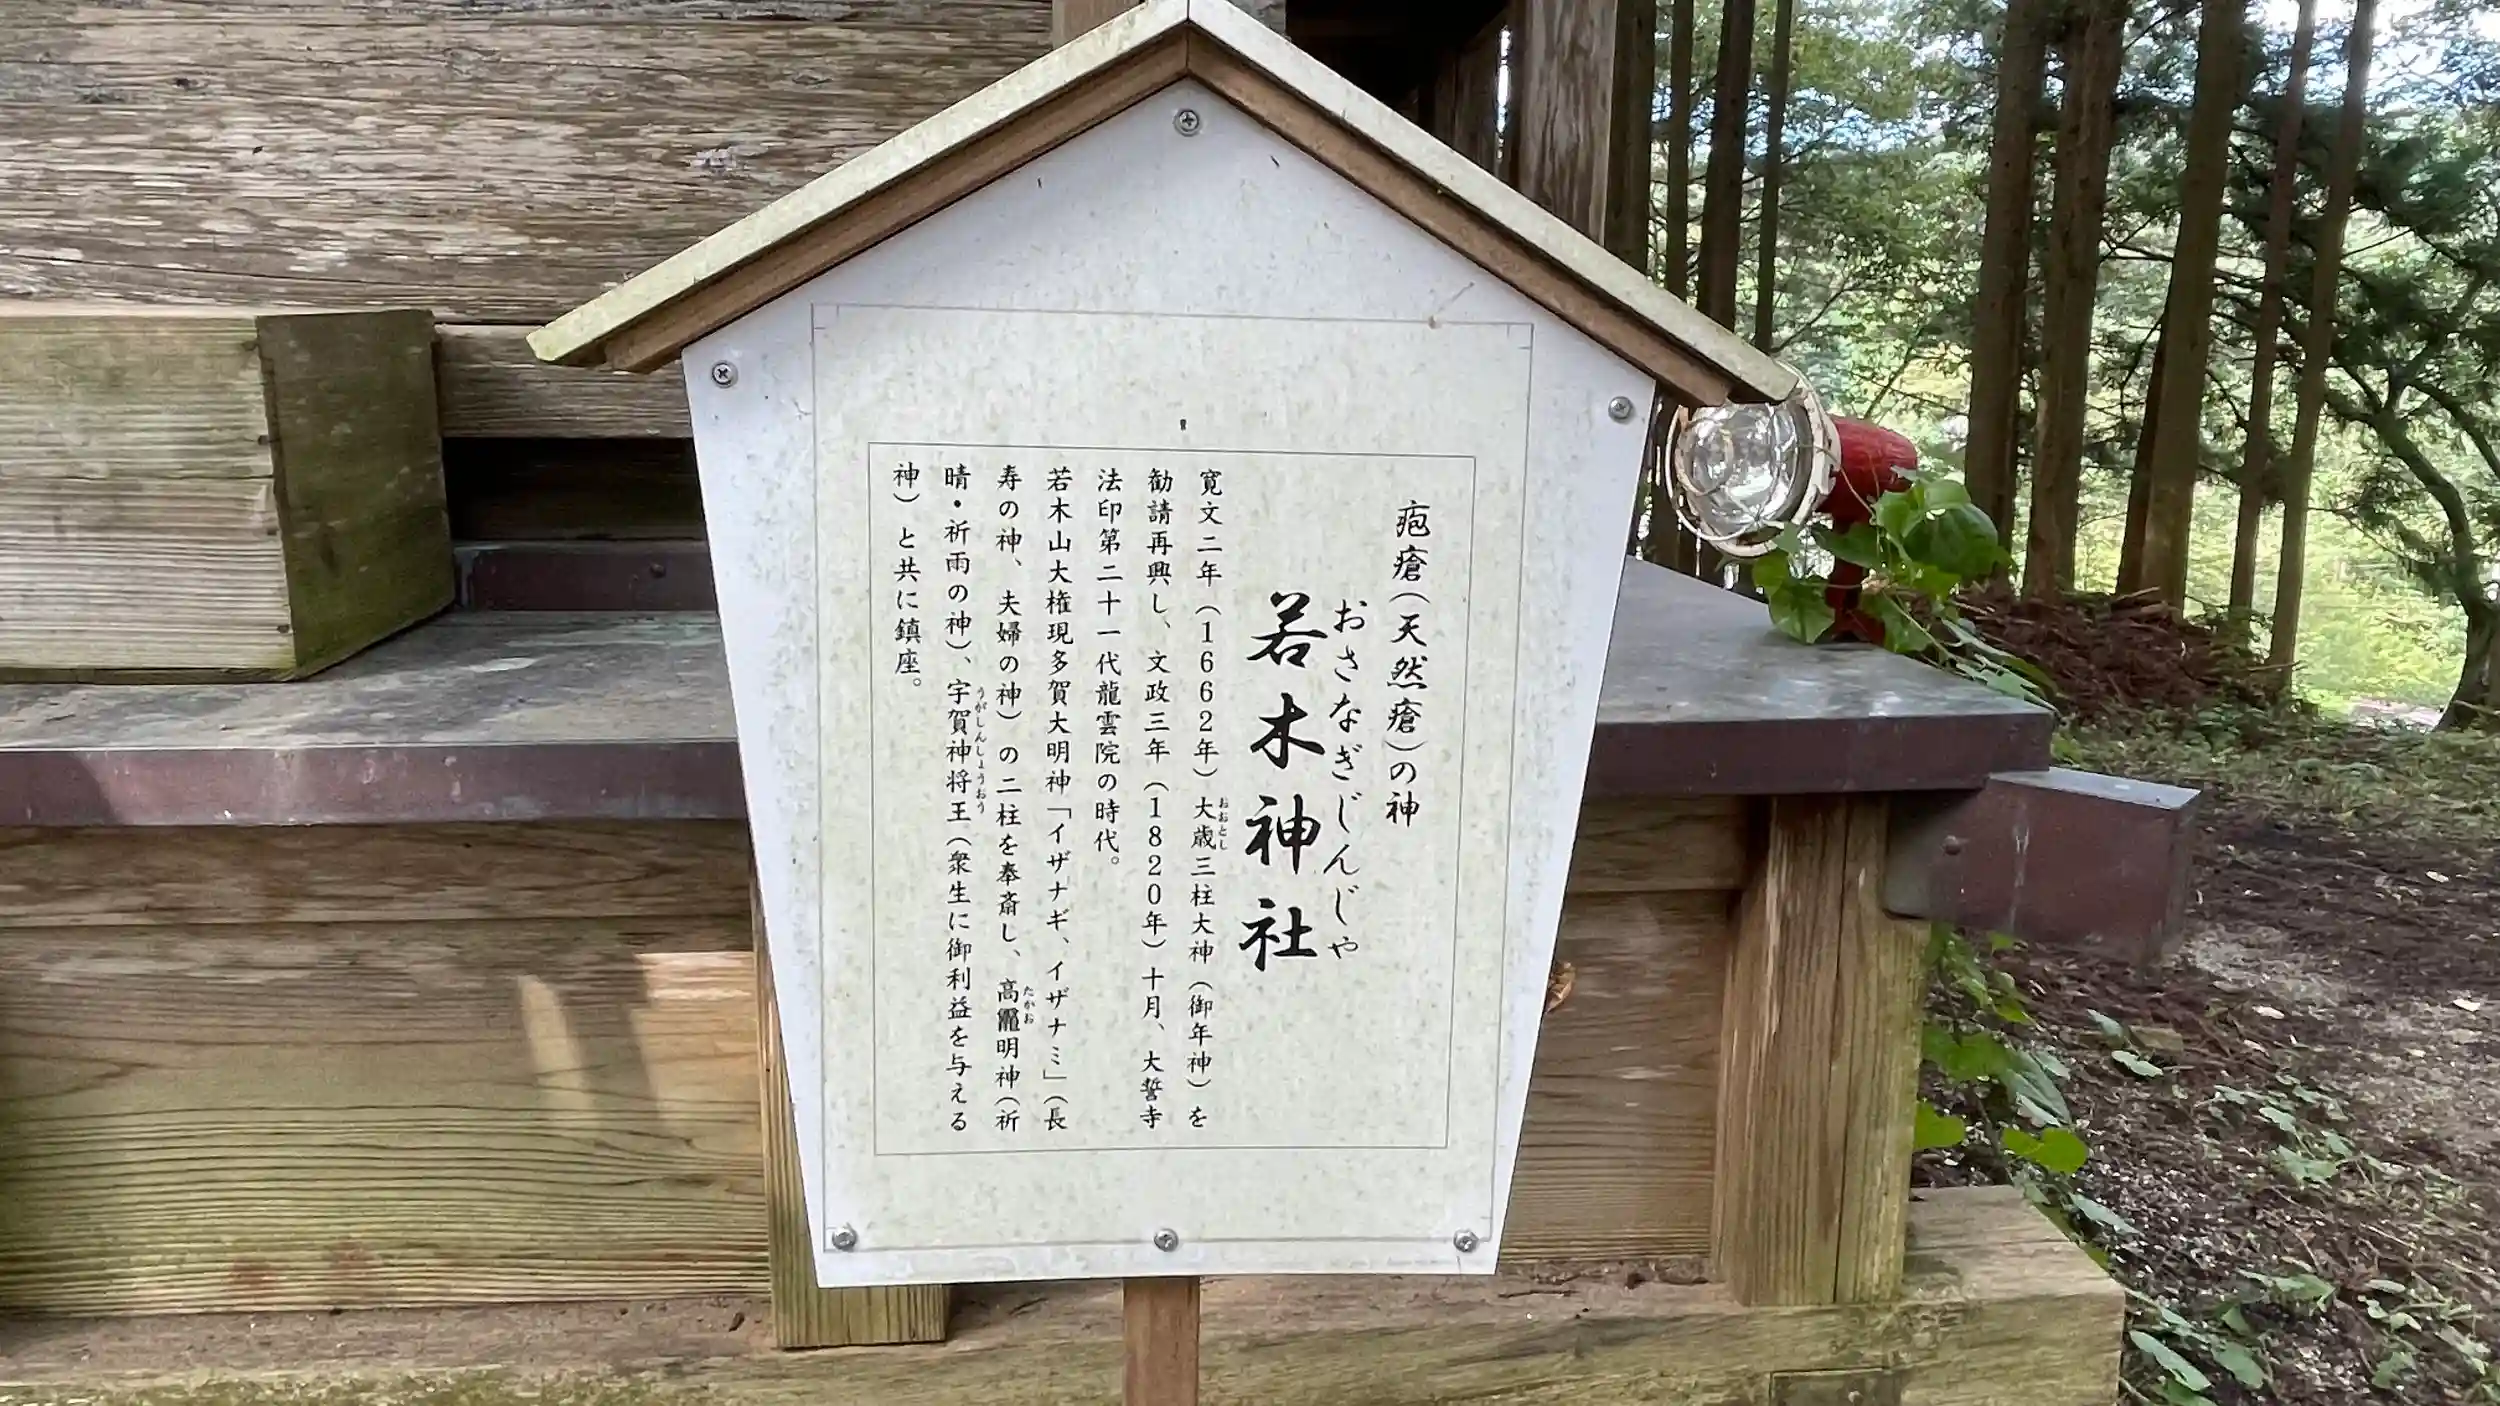 疱瘡(天然瘡)の神
おさなぎじんじゃ
若木神社
寛文二年(1662年)大歳三柱大神(御年神)を
おおとし
勧請再興し、文政三年(1820年)十月、大誓寺
法印第二十一代龍雲院の時代。
若木山大権現多賀大明神「イザナギ、イザナミ」(長
寿の神、夫婦の神)の二柱を奉斎し、高龗明神(祈
たかお
晴・祈雨の神)、宇賀神将王(衆生に御利益を与える
うがしんしょうおう
神)と共に鎮座。